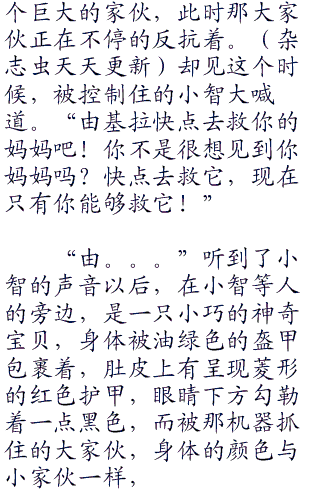 个巨大的家伙，此时那大家
伙正在不停的反抗着。（杂
志虫天天更新）却见这个时
候，被控制住的小智大喊
道。“由基拉快点去救你的
妈妈吧！你不是很想见到你
妈妈吗？快点去救它，现在
只有你能够救它！”
“由。。。”听到了小
智的声音以后，在小智等人
的旁边，是一只小巧的神奇
宝贝，身体被油绿色的盔甲
包裹着，肚皮上有呈现菱形
的红色护甲，眼睛下方勾勒
着一点黑色，而被那机器抓
住的大家伙，身体的颜色与
小家伙一样，